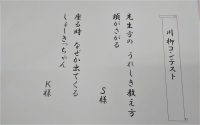 川柳コンテスト
先生方の うれしき教え方
頭がさがる
S様
座る時 なぜか出てくる
しょーきっちゃん
K様